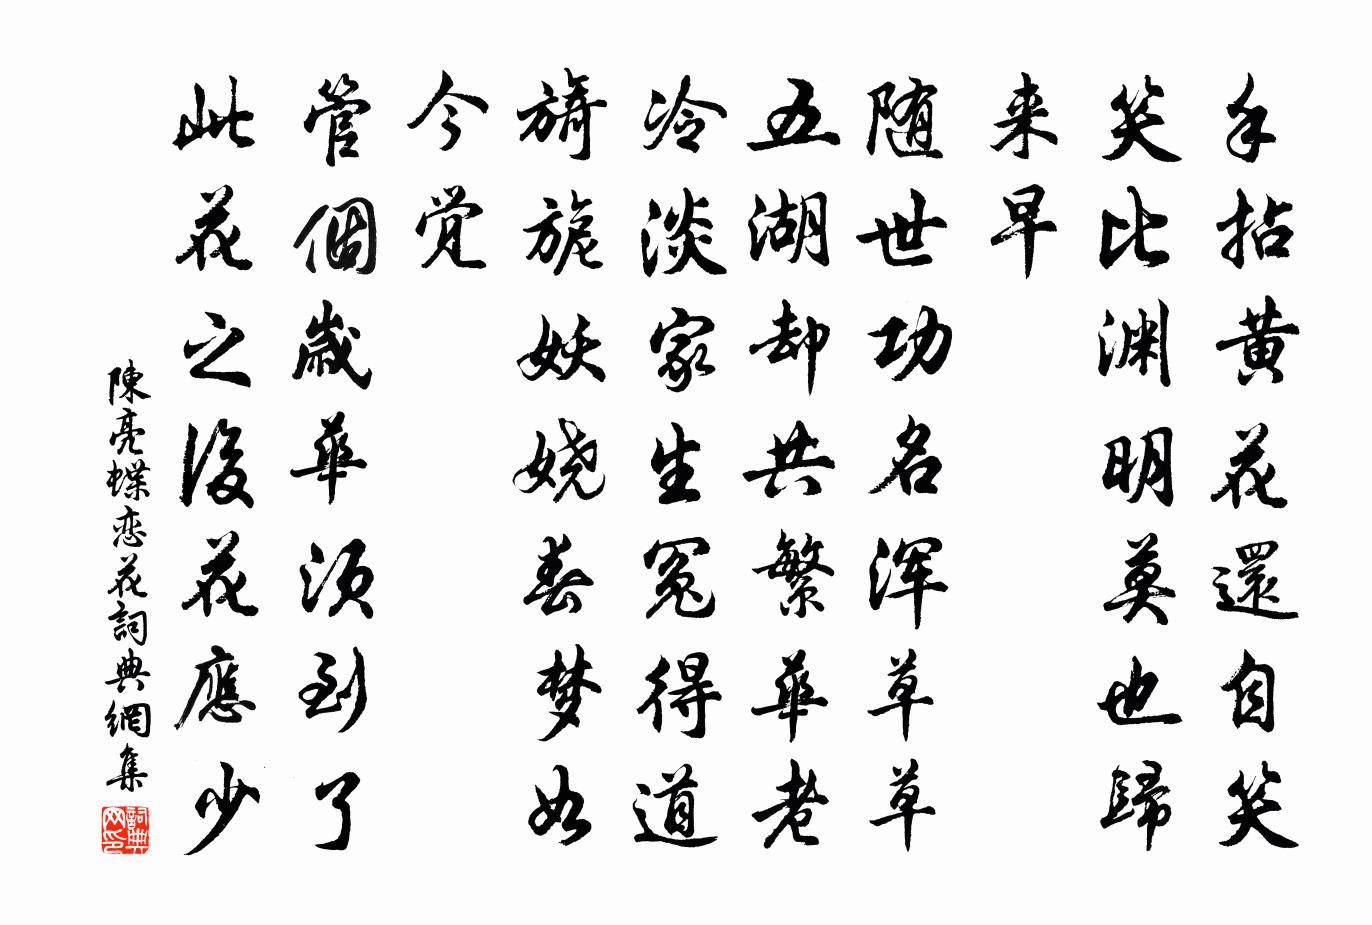 手拈黄花還自笑
笑比渊明莫也歸
来早
随世功名浑草草
五湖却共繁華老
冷淡家生冤得道
旖旎妖娆春梦如
今觉
管個歲華须到了
此花之後花應少
陳亮蝶恋花詞典網集
詞典网印